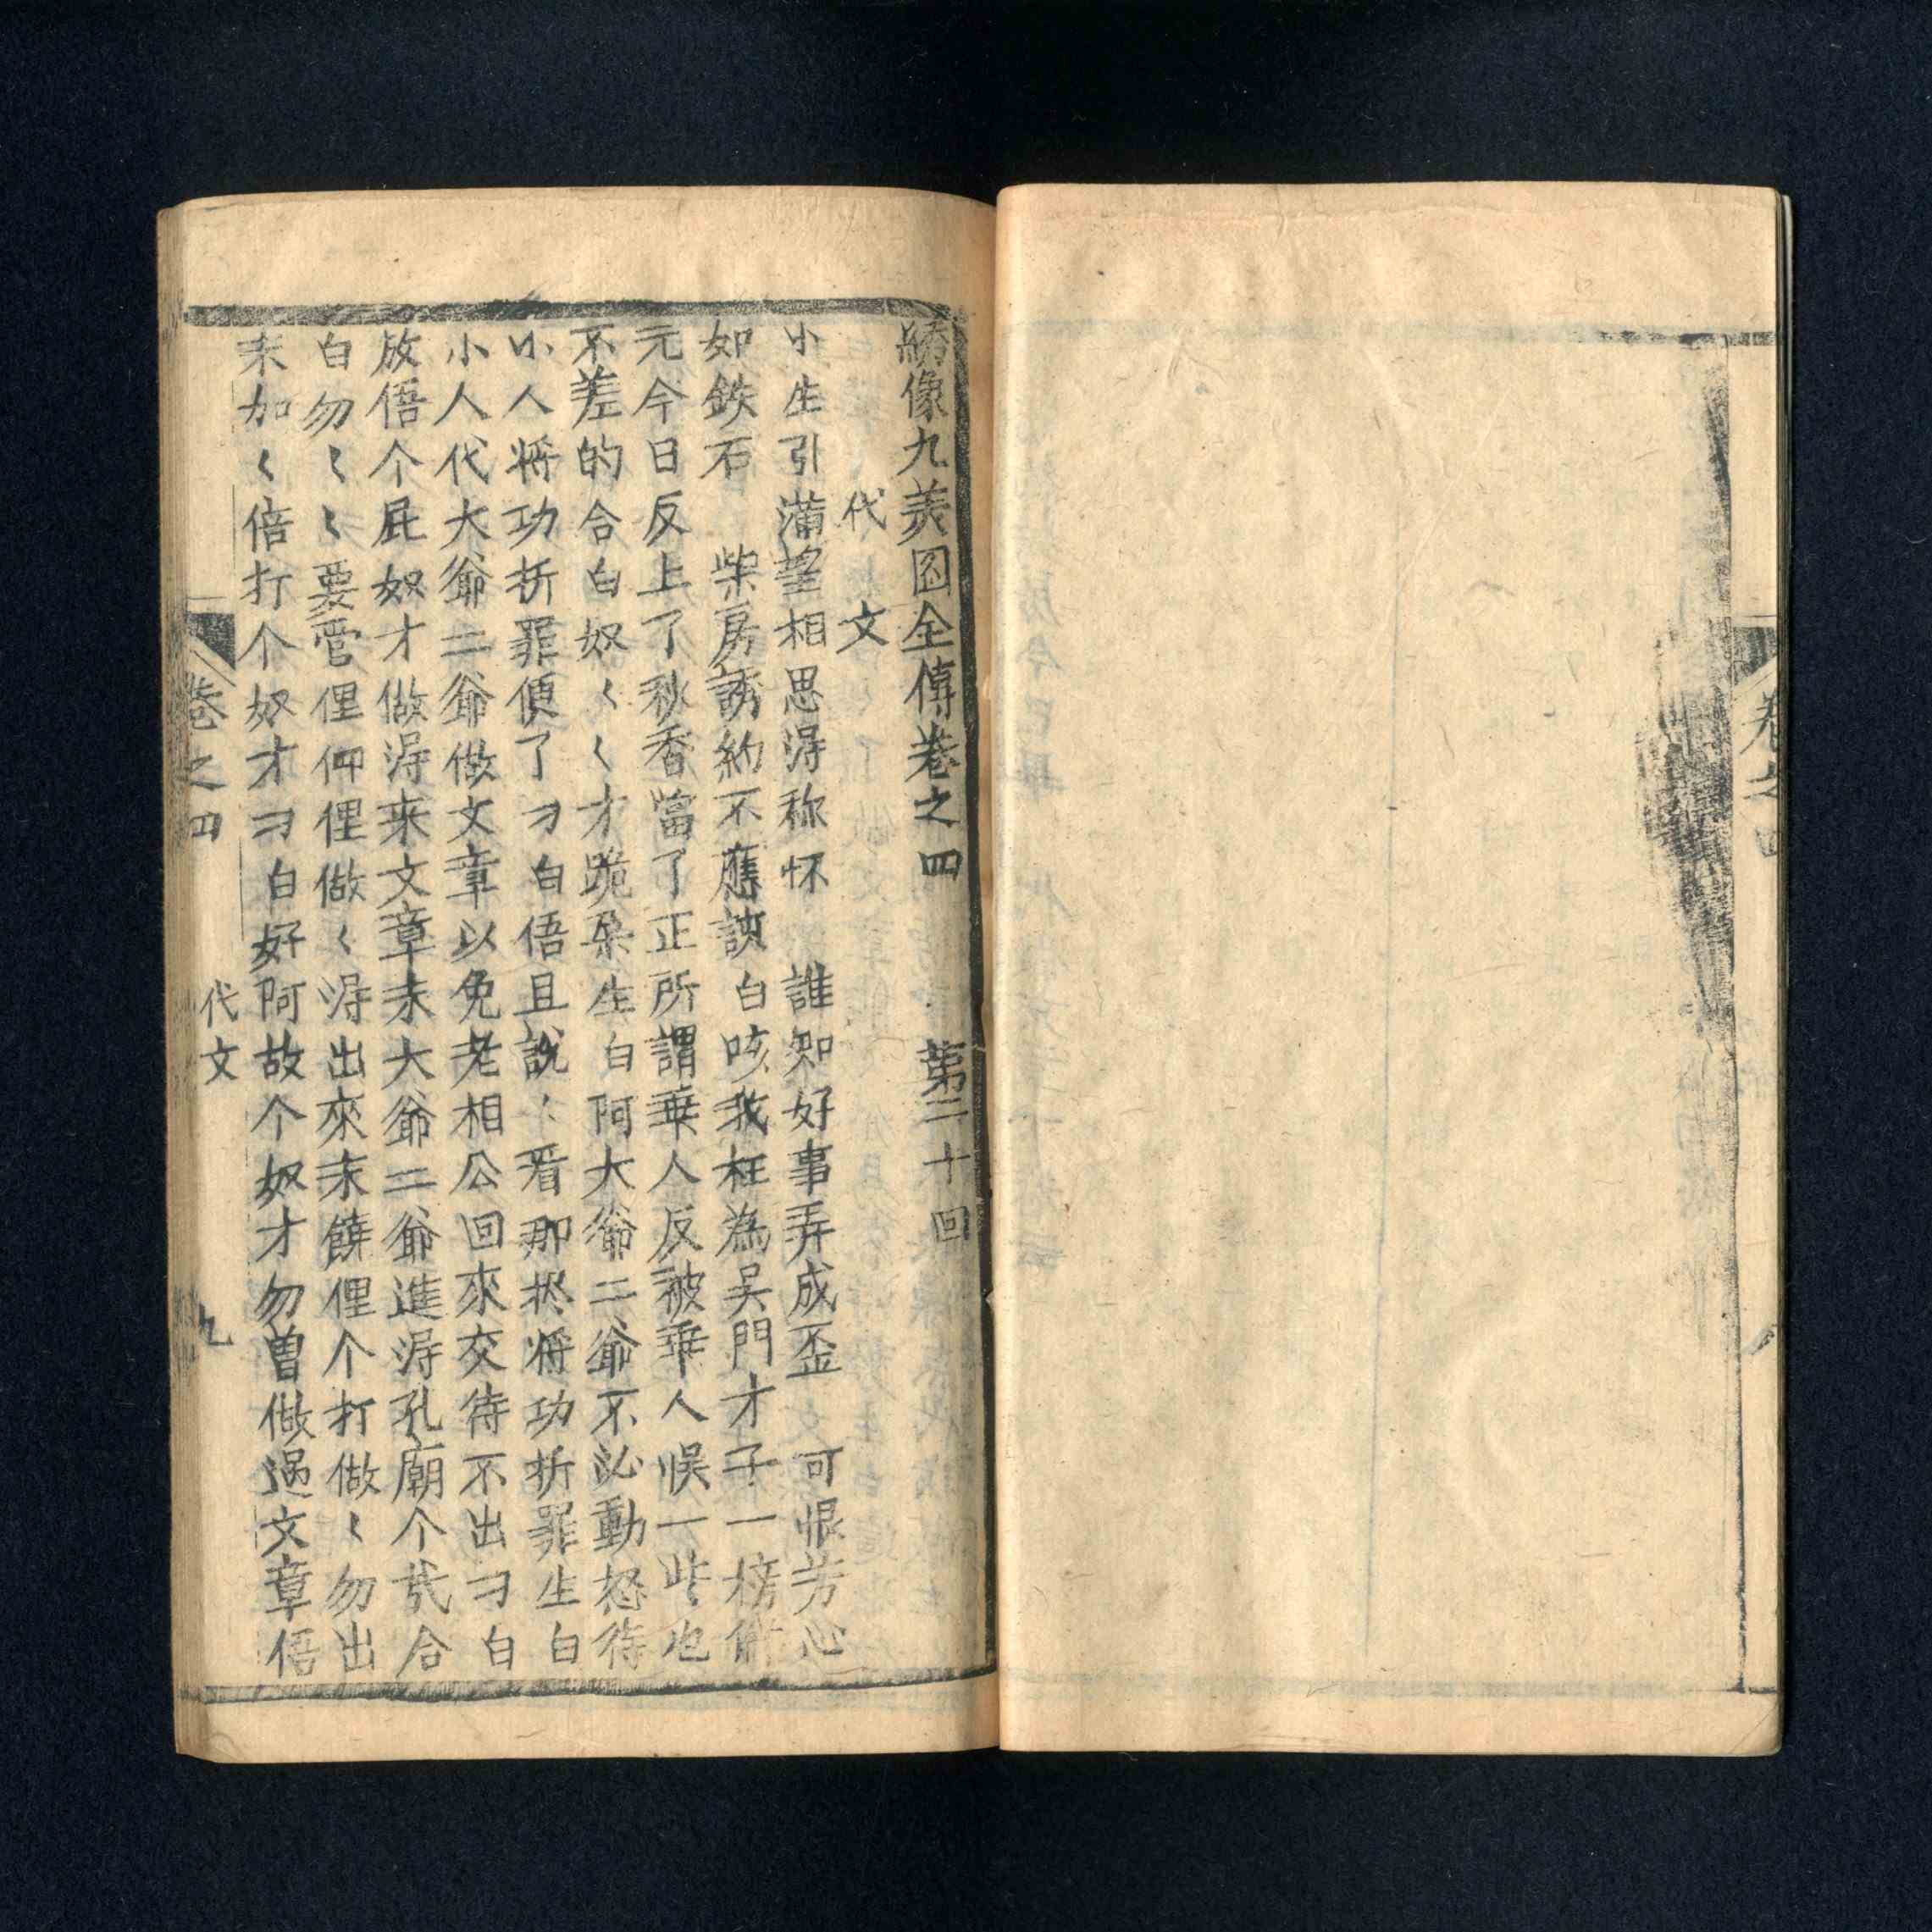 綉像九美图全傳卷之四　第二十回
代　文
小生引滿望相思淂称怀　誰知好事弄成歪　可恨芳心
如鉄石　柴房誘約不應諛　白咳我枉為吴門才子一榜
元今日反上了秋香當了正所謂乗人反被乗人悮一些也
不差的合白奴〻才跪来生白阿大爺二爺不必動怒待
小人将功折罪便了刁白俉且說〻看那㨾将功折罪生白
小人代大爺二爺做文章以免老相公回來交待不出刁白
放俉个屁奴才做淂来文章末大爺二爺進淂孔廟个哉合
白勿〻〻要管俚仰俚做〻淂出來末饒俚个打做〻勿出
末加〻倍打个奴才刁白好阿故个奴才勿曽做過文章俉
卷之四　代文　九
卷之四